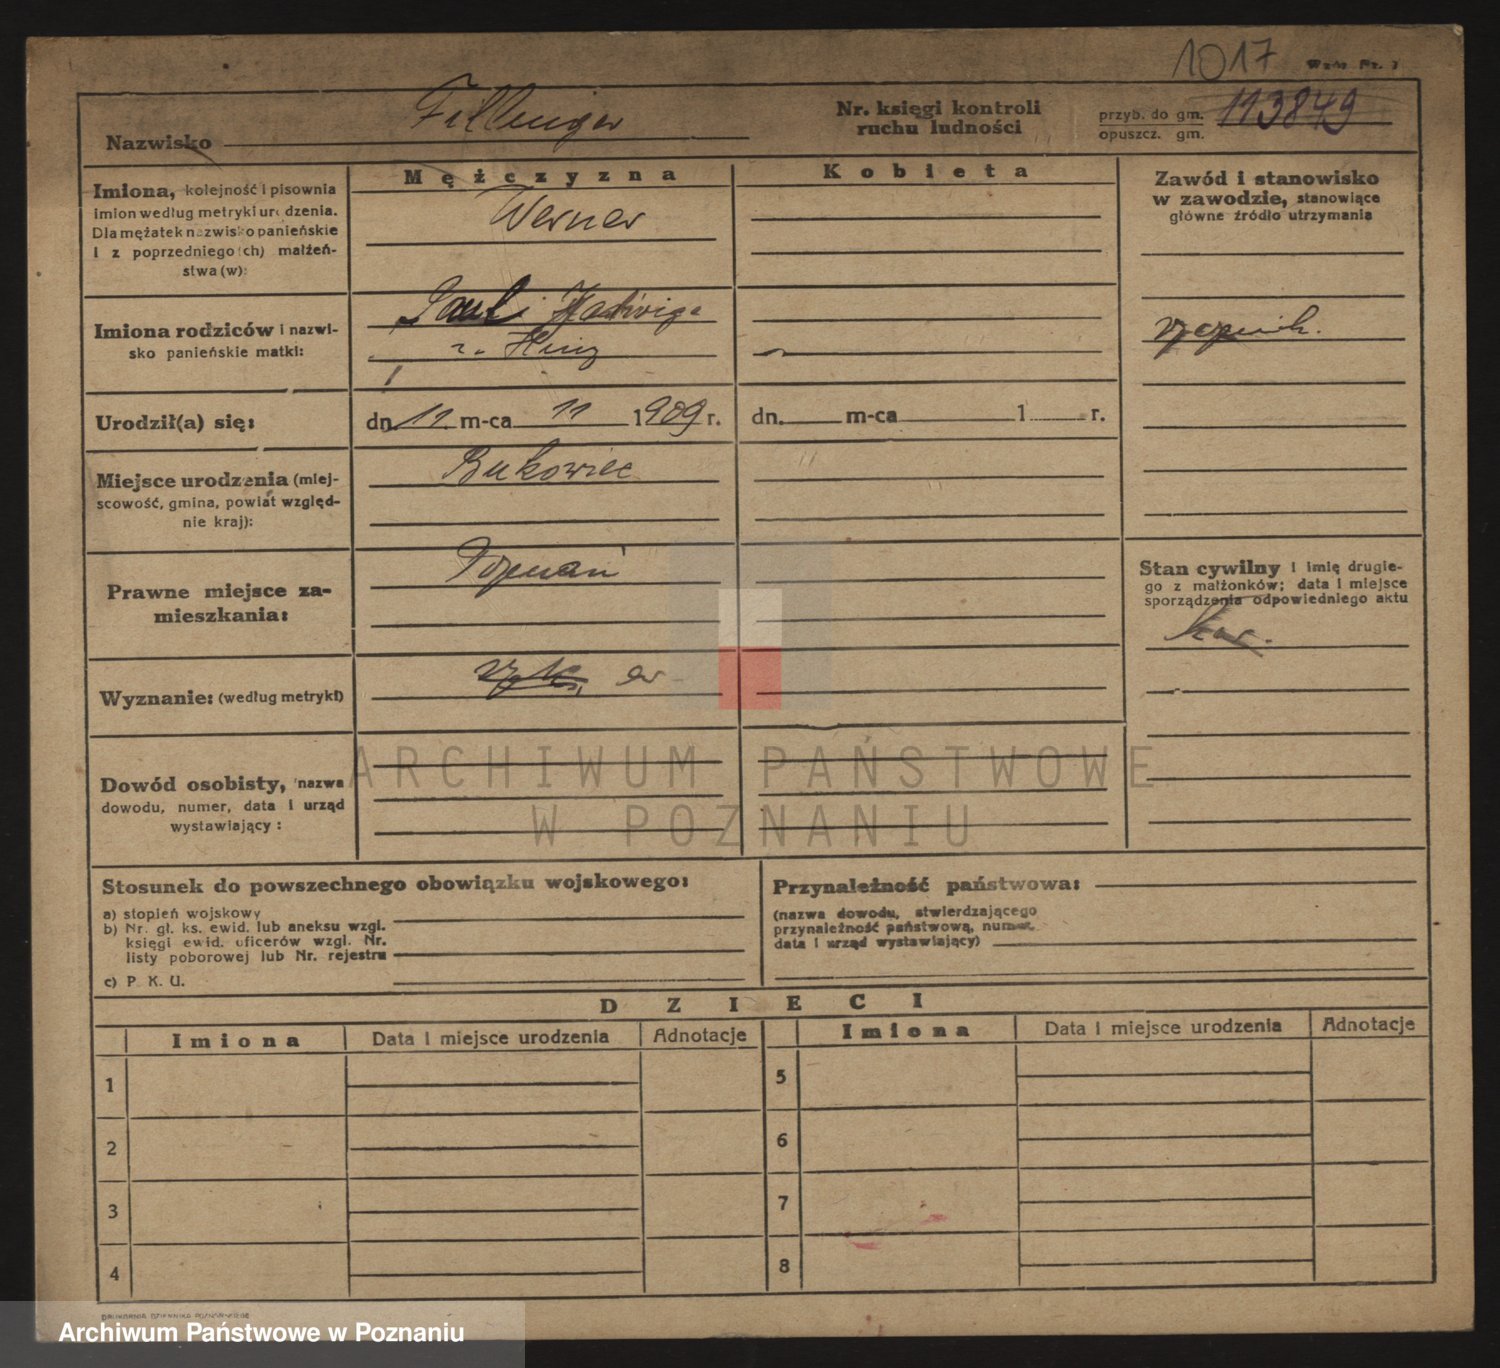 1017 Wzór Nr. 1
Nazwisko Fellinger
Nr. księgi kontroli
ruchu ludności
przyb. do gm.
opuszcz. gm.
113849
Imiona, kolejność i pisownia
imion według metryki urodzenia.
Dla mężatek nazwisko panieńskie
i z poprzedniego(ch) małżeń-
stwa (w):
Mężczyzna
Werner
Kobieta
Zawód i stanowisko
w zawodzie, stanowiące
główne źródło utrzymania
Imiona rodziców i nazwi-
sko panieńskie matki:
Paul i Hadwiga
Urodził(a) się:
dn. 11 m-ca 11 1909 r.
dn. m-ca 1 r.
Miejsce urodzenia (miej-
scowość, gmina, powiat względ-
nie kraj):
Bukowiec
Prawne miejsce za-
mieszkania:
Poznań
Stan cywilny i imię drugie-
go z małżonków; data i miejsce
sporządzenia odpowiedniego aktu
Wyznanie: (według metryki)
rz. k. ew
Dowód osobisty, nazwa
dowodu, numer, data i urząd
wystawiający:
ARCHIWUM PAŃSTWOWE
W POZNANIU
Stosunek do powszechnego obowiązku wojskowego:
a) stopień wojskowy
b) Nr. gł. ks. ewid. lub aneksu wzgl.
księgi ewid. oficerów wzgl. Nr.
listy poborowej lub Nr. rejestru
c) P. K. U.
Przynależność państwowa:
(nazwa dowodu, stwierdzającego
przynależność państwową, numer,
data i urząd wystawiający)
DZIECI
Imiona Data i miejsce urodzenia Adnotacje Imiona Data i miejsce urodzenia Adnotacje
1 5
2 6
3 7
4 8
DRUKARNIA DZIENNIKA POZNAŃSKIEGO
Archiwum Państwowe w Poznaniu